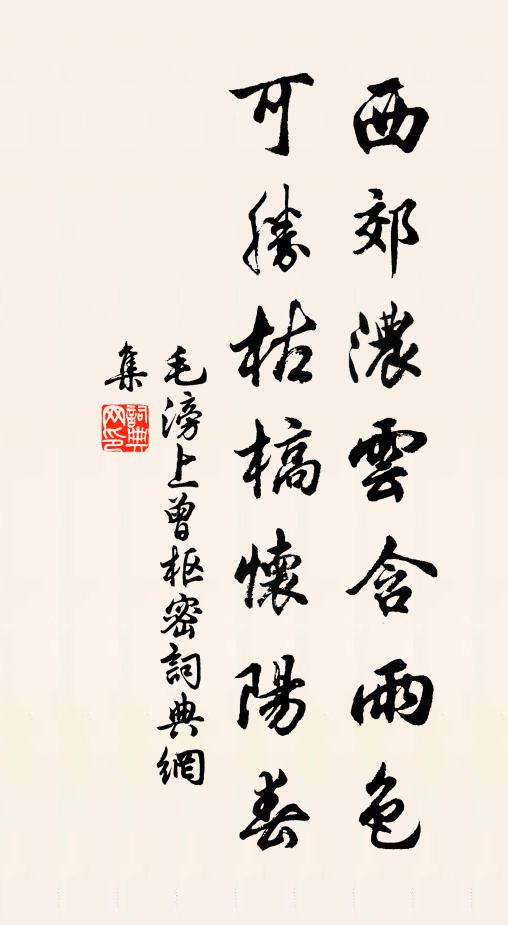 西郊濃雲含雨色
可勝枯槁懷陽春
毛滂上曾枢密詞典網
集
詞典
网印